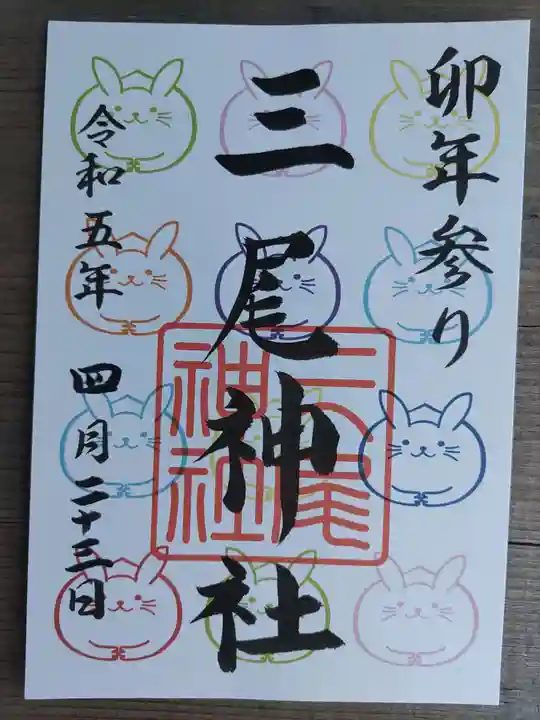 卯年参り
三尾神社
三尾神社
令和五年 四月二十三日